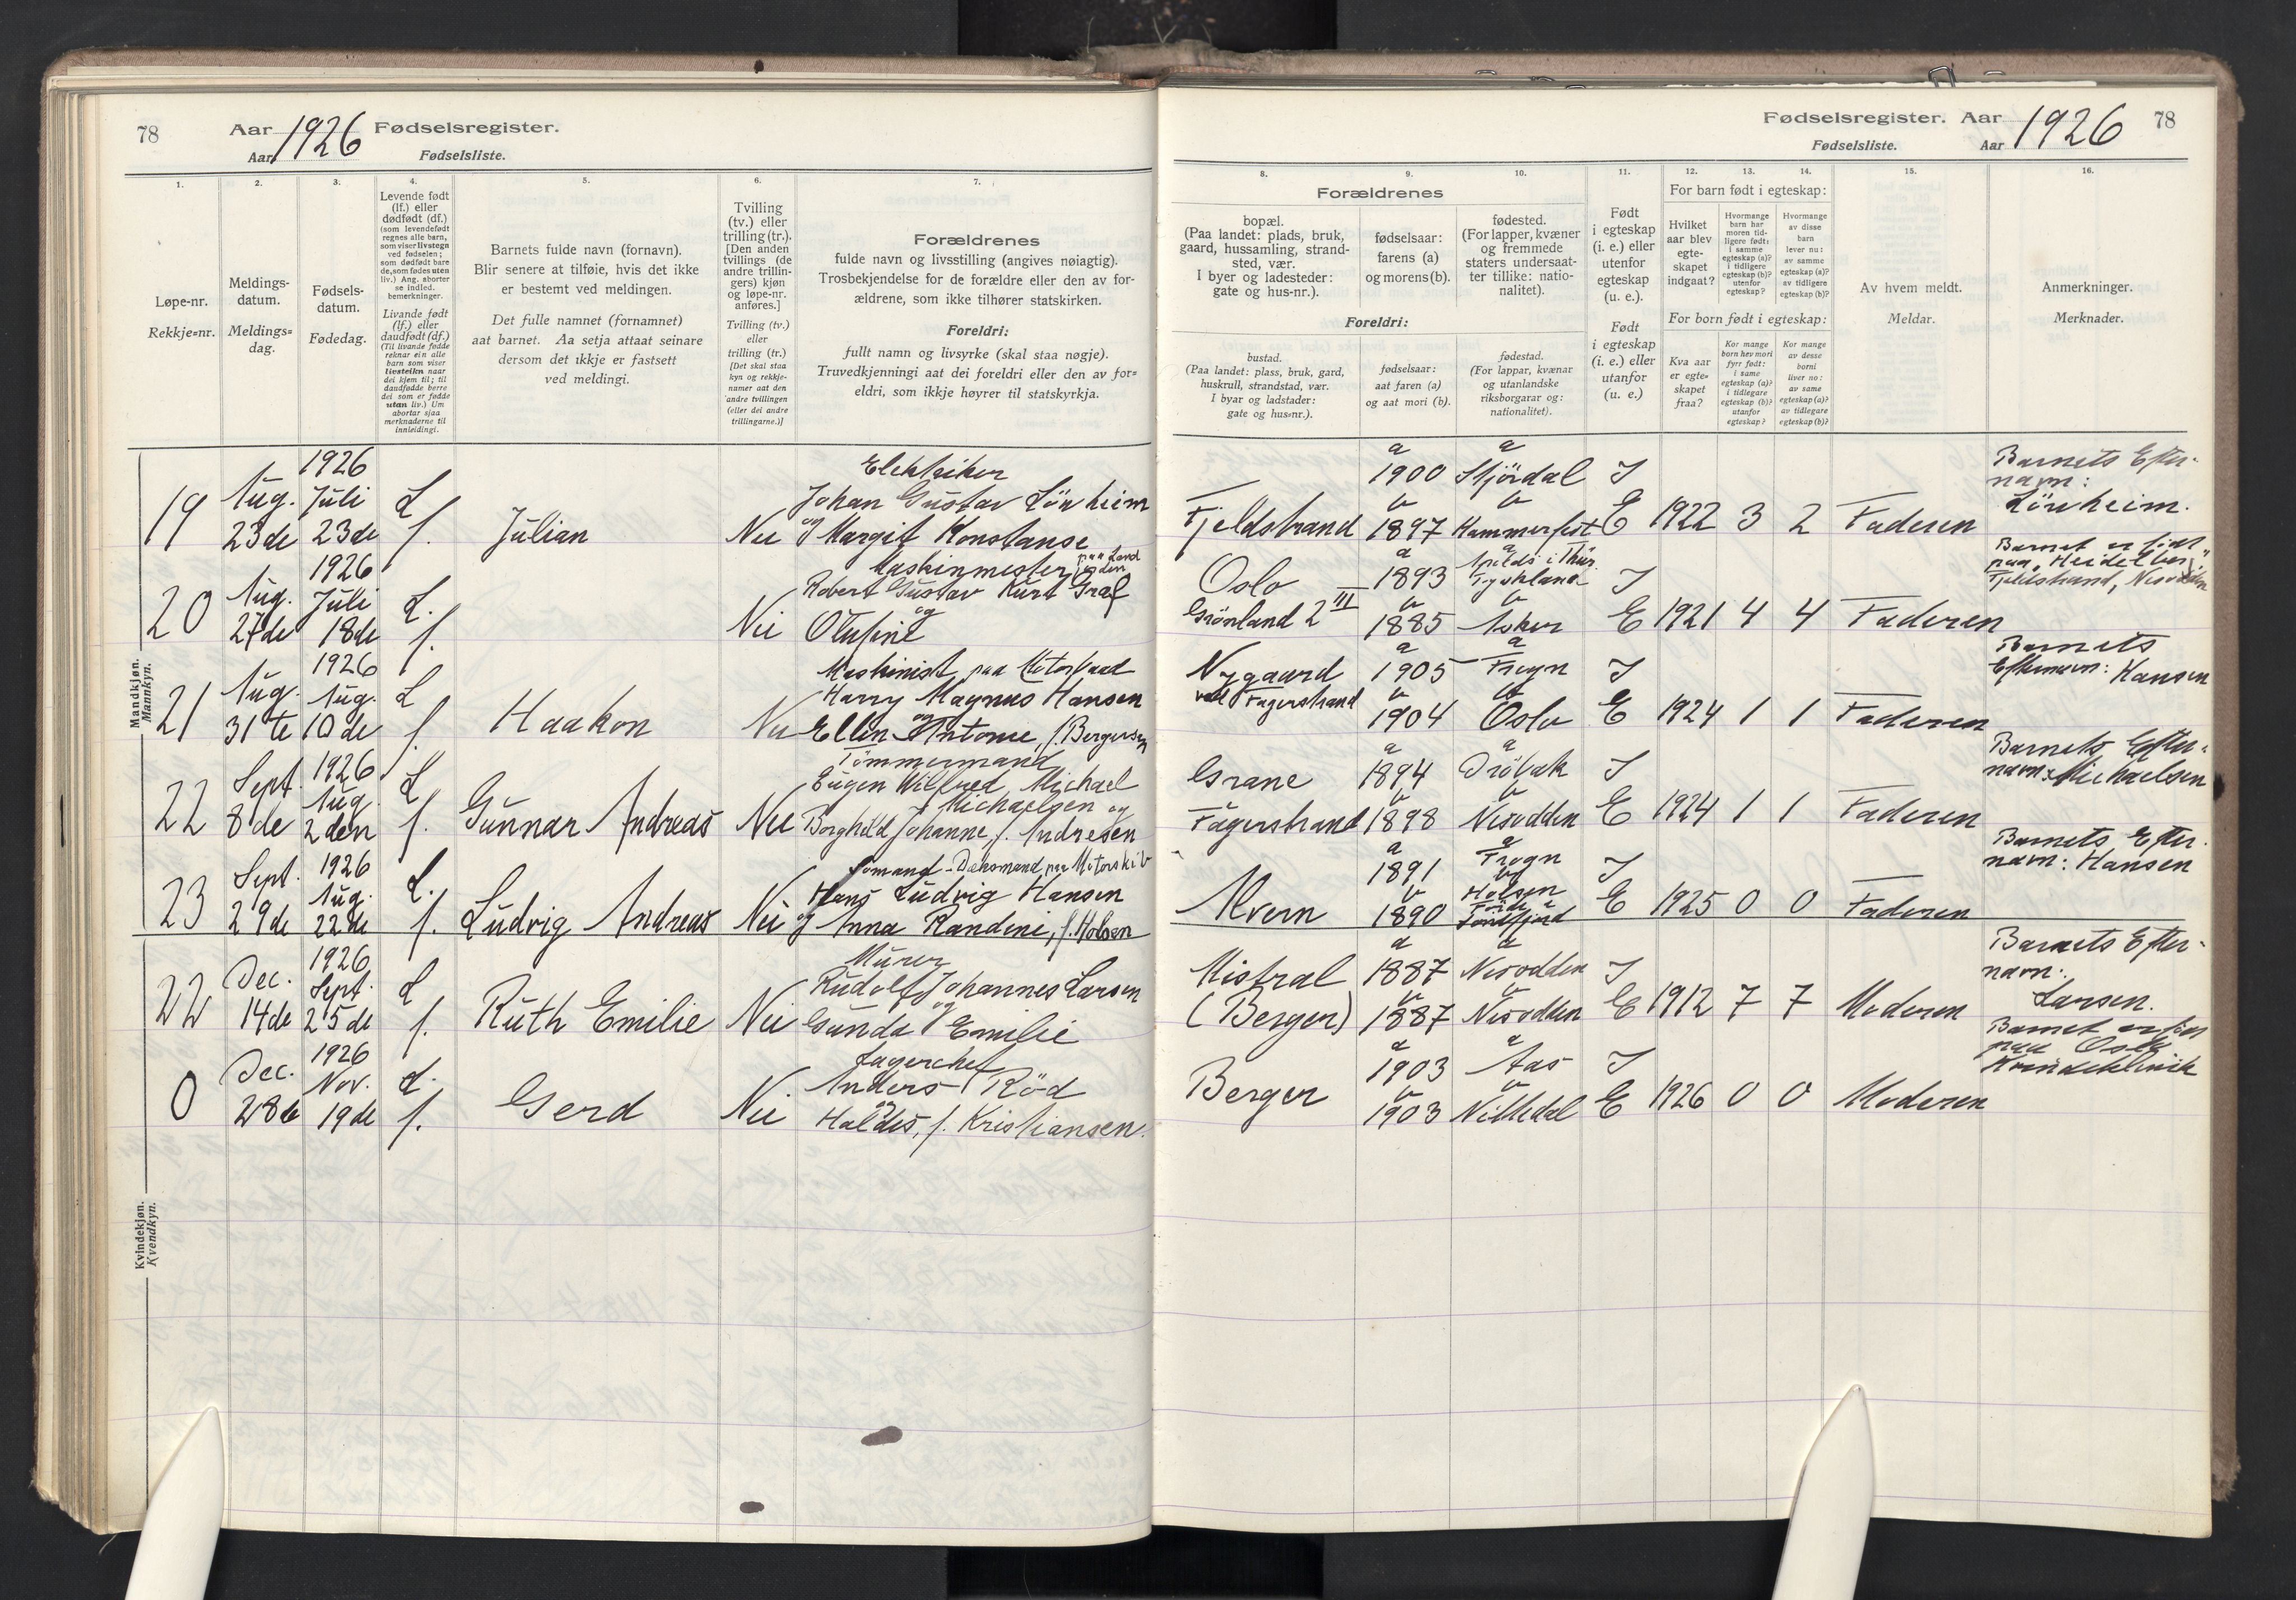 78 Aar 1926 Fødselsregister.
Aar Fødselsliste.
1. 2. 3. 4. 5. 6. 7.
Løpe-nr.
Rekkje=nr.
Meldings-
datum.
Meldings=
dag.
Fødsels-
datum.
Fødedag.
Levende født
(lf.) eller
dødfødt (df.)
(som levendefødt
regnes alle barn,
som viser livstegn
ved fødselen;
som dødfødt bare
de, som fødes uten
liv.) Ang. aborter
se indled.
bemerkninger.
Livande født
(lf.) eller
daudfødt (df.)
(Til livande fødde
reknar ein alle
barn som viser
livsteikn naar
dei kjem til; til
daudfødde berre
dei som er fødde
utan liv.) Um
abortar sjaa
merknaderne til
innleidingi.
Barnets fulde navn (fornavn).
Blir senere at tilføie, hvis det ikke
er bestemt ved meldingen.
Det fulle namnet (fornamnet)
aat barnet. Aa setja attaat seinare
dersom det ikkje er fastsett
ved meldingi.
Tvilling
(tv.) eller
trilling (tr.).
[Den anden
tvillings (de
andre trillin-
gers) kjøn
og løpe-nr.
anføres.]
Tvilling (tv.)
eller
trilling (tr.)
[Det skal staa
kyn og rekkje-
numer aat den
andre tvillingen
(eller dei andre
trillingarne.)]
Forældrenes
fulde navn og livsstilling (angives nøiagtig).
Trosbekjendelse for de forældre eller den av for-
ældrene, som ikke tilhører statskirken.
Foreldri:
fullt namn og livsyrke (skal staa nøgje).
Truvedkjenningi aat dei foreldri eller den av for=
eldri, som ikkje høyrer til statskyrkja.
Mandkjøn.
Mannkyn.
1926
Elektriker
19 Aug. Juli L Johan Gustav Lönheim
23de 23de f. Julian Nei og Margit Konstanse
1926 Maskinmester paa Land
jorden
20 Aug. Juli L. Robert Gustav Kurt Graf
og
27de 18de f. Nei Olufine
1926 Maskinist paa Motorbaad
21 Aug. Aug. L Harry Magnus Hansen
og
31te 10de f. Haakon Nei Ellen Antonie, f. Bergersen
1926 Tömmermand
22 Sept. Aug. L Eugen Wilfred Michael
Michaelsen og
8de 2den f. Gunnar Andreas Nei Borghild Johanne, f. Andresen
1926 Sömand - Dæksmand paa Motorskib
23 Sept. Aug. L. Hans Ludvig Hansen
29de 22de f. Ludvig Andreas Nei og Anna Randine, f. Holsen
Kvindekjøn.
Kvendkyn.
1926 Murer
22 Dec. Sept. L Rudolf Johannes Larsen
og
14de 25de f. Ruth Emilie Nei Gunda Emilie
1926 Lagerchef
0 Dec. Nov. L. Anders Röd
og
28de 19de f. Gerd Nei Haldis, f. Kristiansen.
Fødselsregister. Aar 1926 78
Fødselsliste. Aar
8. 9. 10. 11. 12. 13. 14. 15. 16.
Forældrenes
bopæl.
(Paa landet: plads, bruk,
gaard, hussamling, strand-
sted, vær.
I byer og ladesteder:
gate og hus-nr.).
fødselsaar:
farens (a)
og morens (b).
fødested.
(For lapper, kvæner
og fremmede
staters undersaat-
ter tillike: natio-
nalitet).
Foreldri:
bustad.
(Paa landet: plass, bruk, gard,
huskrull, strandstad, vær.
I byar og ladstader:
gate og hus=nr.).
fødselsaar:
aat faren (a)
og aat mori (b).
fødestad.
(For lappar, kvænar
og utanlandske
riksborgarar og:
nationalitet).
Født
i egteskap
(i. e.) eller
utenfor
egteskap
(u. e.).
Født
i egteskap
(i. e.) eller
utanfor
(u. e.)
For barn født i egteskap:
Hvilket
aar blev
egte-
skapet
indgaat?
Hvormange
barn har
moren tid-
ligere født:
i samme
egteskap (a)?
i tidligere
egteskap (b)?
utenfor
egteskap?
Hvormange
av disse
barn
lever nu:
av samme
egteskap (a)?
av tidligere
egteskap (b)?
For born født i egteskap:
Kva aar
er egte=
skapet
fraa?
Kor mange
born hev mori
fyrr født:
i same
egteskap (a)?
i tidlegare
egteskap (b)?
utanfor
egteskap?
Kor mange
av desse
borni
liver no:
av same
egteskap (a)?
av tidlegare
egteskap (b)?
Av hvem meldt.
Meldar.
Anmerkninger.
Merknader.
a a Barnets Efter-
1900 Stjördal I navn:
b b Lönheim.
Fjeldstrand 1897 Hammerfest E 1922 3 2 Faderen
a a Barnet er født
Oslo 1893 i Thür. I paa "Heidelberg"
Tyskland Fjeldstrand, Nesodden
III b b
Grönland 2 1885 Asker E 1921 4 4 Faderen
a a Barnets
Nygaard 1905 Frogn I Efternavn: Hansen
ved Fagerstrand b b
1904 Oslo E 1924 1 1 Faderen
a a Barnets Efter-
Grane 1894 Dröbak I navn: Michaelsen
b b
Fagerstrand 1898 Nesodden E 1924 1 1 Faderen
a a Barnets Efter-
1891 Frogn I navn: Hansen
b b Holsen
Förde i
Alvern 1890 Söndfjord E 1925 0 0 Faderen
a a Barnets Efter-
Mistral 1887 Nesodden I navn:
b b Larsen.
(Berger) 1887 Nesodden E 1912 7 7 Moderen
a a Barnet er født
1903 Aas I paa Oslo
Berger b b Kvindeklinik
1903 Nittedal E 1926 0 0 Moderen